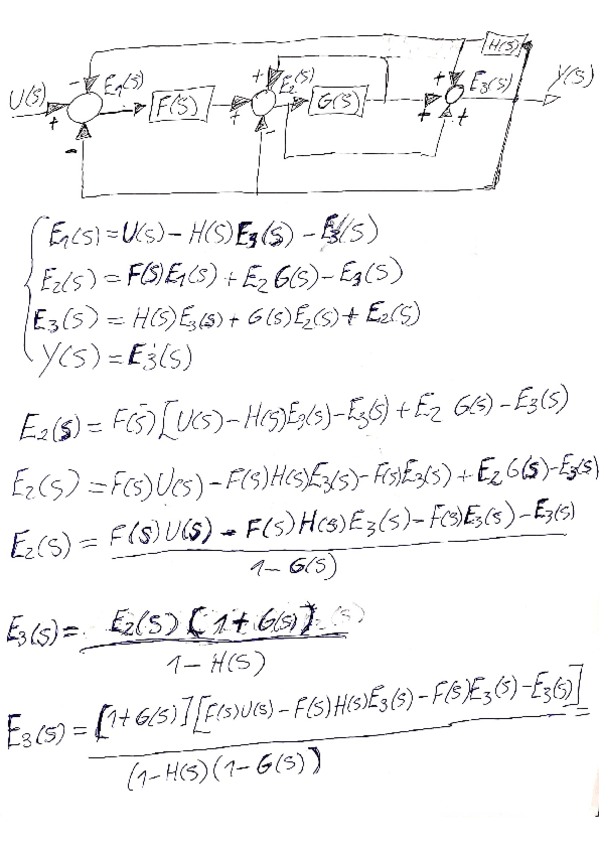 H(s)
- E₁(s) + E₂(s) + E₃(s) Y(s)
U(s) F(s) G(s)
+ + + +
- -
E₁(s) = U(s) - H(s)E₃(s) - E₃(s)
E₂(s) = F(s)E₁(s) + E₂ G(s) - E₃(s)
E₃(s) = H(s)E₃(s) + G(s)E₂(s) + E₂(s)
Y(s) = E₃(s)
E₂(s) = F(s)[U(s) - H(s)E₃(s) - E₃(s) + E₂ G(s) - E₃(s)
E₂(s) = F(s)U(s) - F(s)H(s)E₃(s) - F(s)E₃(s) + E₂ G(s) - E₃(s)
E₂(s) = F(s)U(s) - F(s)H(s)E₃(s) - F(s)E₃(s) - E₃(s)
1 - G(s)
E₃(s) = E₂(s)[1 + G(s)]
1 - H(s)
E₃(s) = [1+G(s)][F(s)U(s) - F(s)H(s)E₃(s) - F(s)E₃(s) - E₃(s)] =
(1-H(s)(1-G(s))